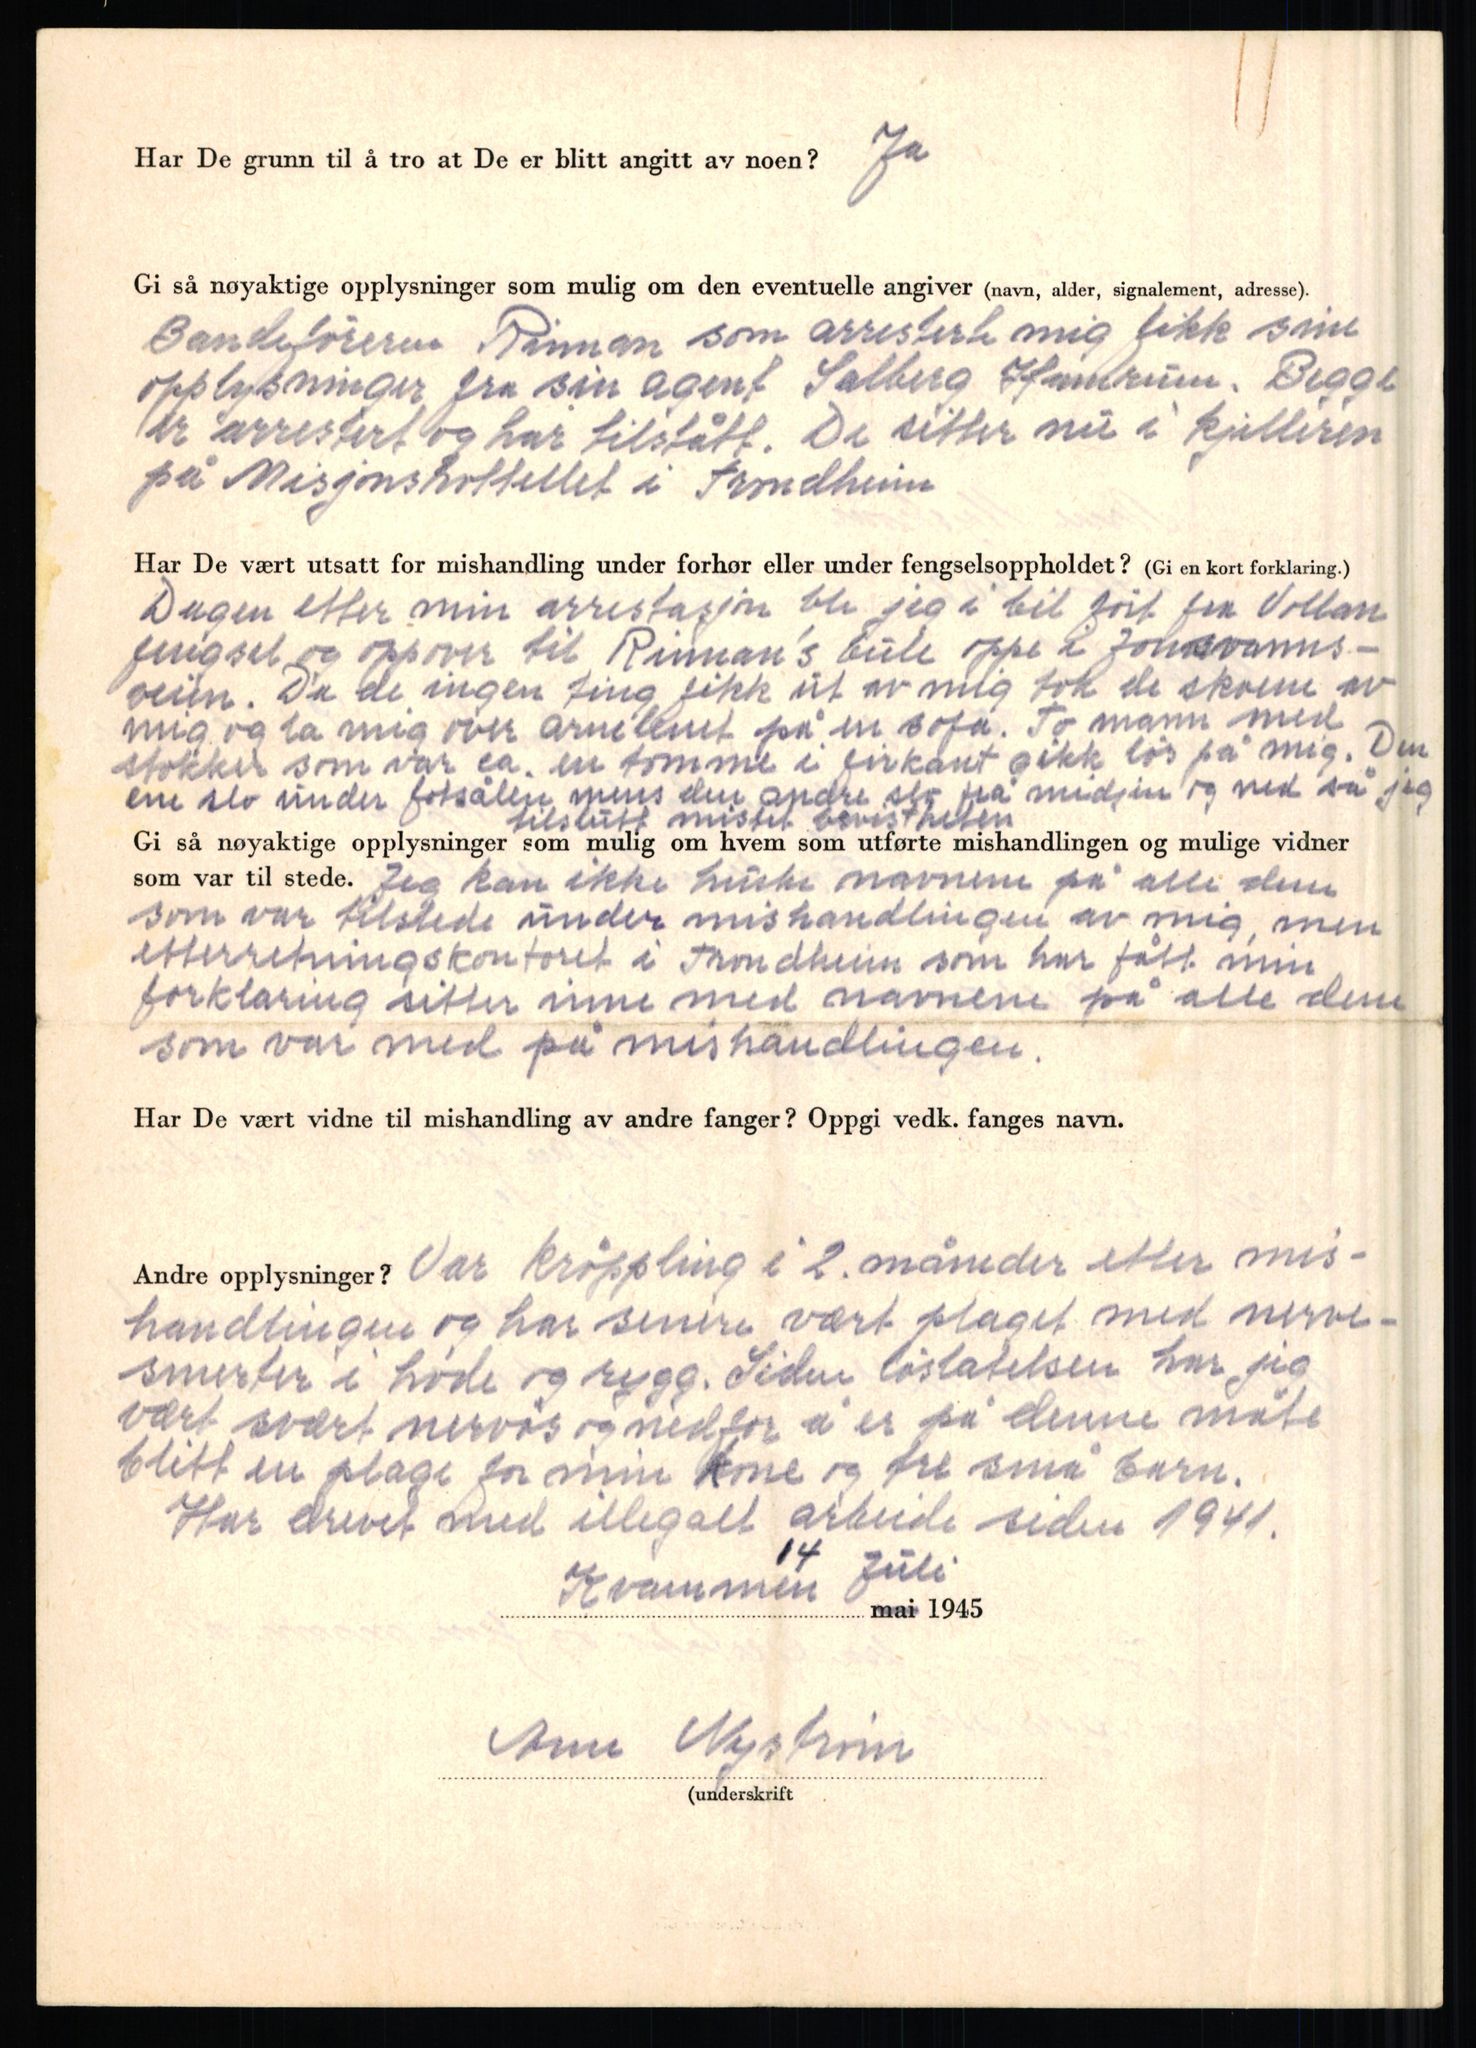 Har De grunn til å tro at De er blitt angitt av noen? Ja
Gi så nøyaktige opplysninger som mulig om den eventuelle angiver (navn, alder, signalement, adresse).
Bandeföreren Rinnan som arresterte mig fikk sine
opplysninger fra sin agent Salberg Hamrun. Begge
er arrestert og har tilstått. De sitter nu i kjelleren
på Misjonshottellet i Trondheim
Har De vært utsatt for mishandling under forhør eller under fengselsoppholdet? (Gi en kort forklaring.)
Dagen etter min arrestasjon ble jeg i bil fört fra Vollan
fengsel og oppover til Rinnan's bule oppe i Jonsvanns-
veien. Da de ingen ting fikk ut av mig tok de skoene av
mig og la mig over armlenet på en sofa. To mann med
stokker som var ca. en tomme i firkant gikk lös på mig. Den
ene slo under fotsålen mens den andre slo på midjen og ned så jeg
tilslutt mistet bevistheten
Gi så nøyaktige opplysninger som mulig om hvem som utførte mishandlingen og mulige vidner
som var til stede. Jeg kan ikke huske navnene på alle dem
som var tilstede under mishandlingen av mig, men
etterretningskontoret i Trondheim som har fått min
forklaring sitter inne med navnene på alle dem
som var med på mishandlingen.
Har De vært vidne til mishandling av andre fanger? Oppgi vedk. fanges navn.
Andre opplysninger? Var kröppling i 2. måneder etter mis-
handlingen og har senere vært plaget med nerve-
smerter i hode og rygg. Siden löslatelsen har jeg
vært svært nervös og nedfor å er på denne måte
blitt en plage for min kone og tre små barn.
Har drevet med illegalt arbeide siden 1941.
Kvammen 14 Juli
mai 1945
Arne Nyström
(underskrift